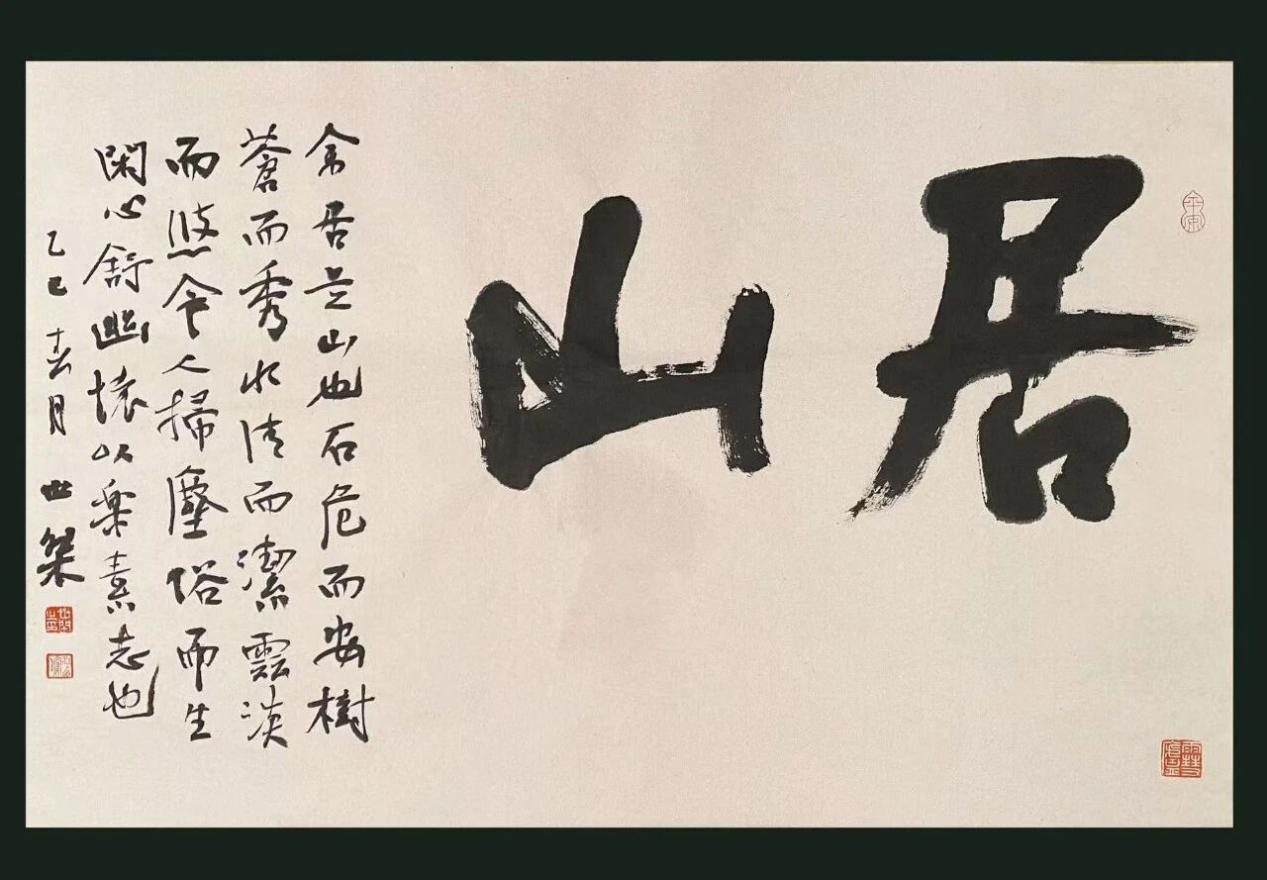 居山
余居是山也石危而安樹
蒼而秀水清而潔雲淡
而悠令人掃塵俗而生
閑心舒幽懷以樂素志也
乙巳春月世桀